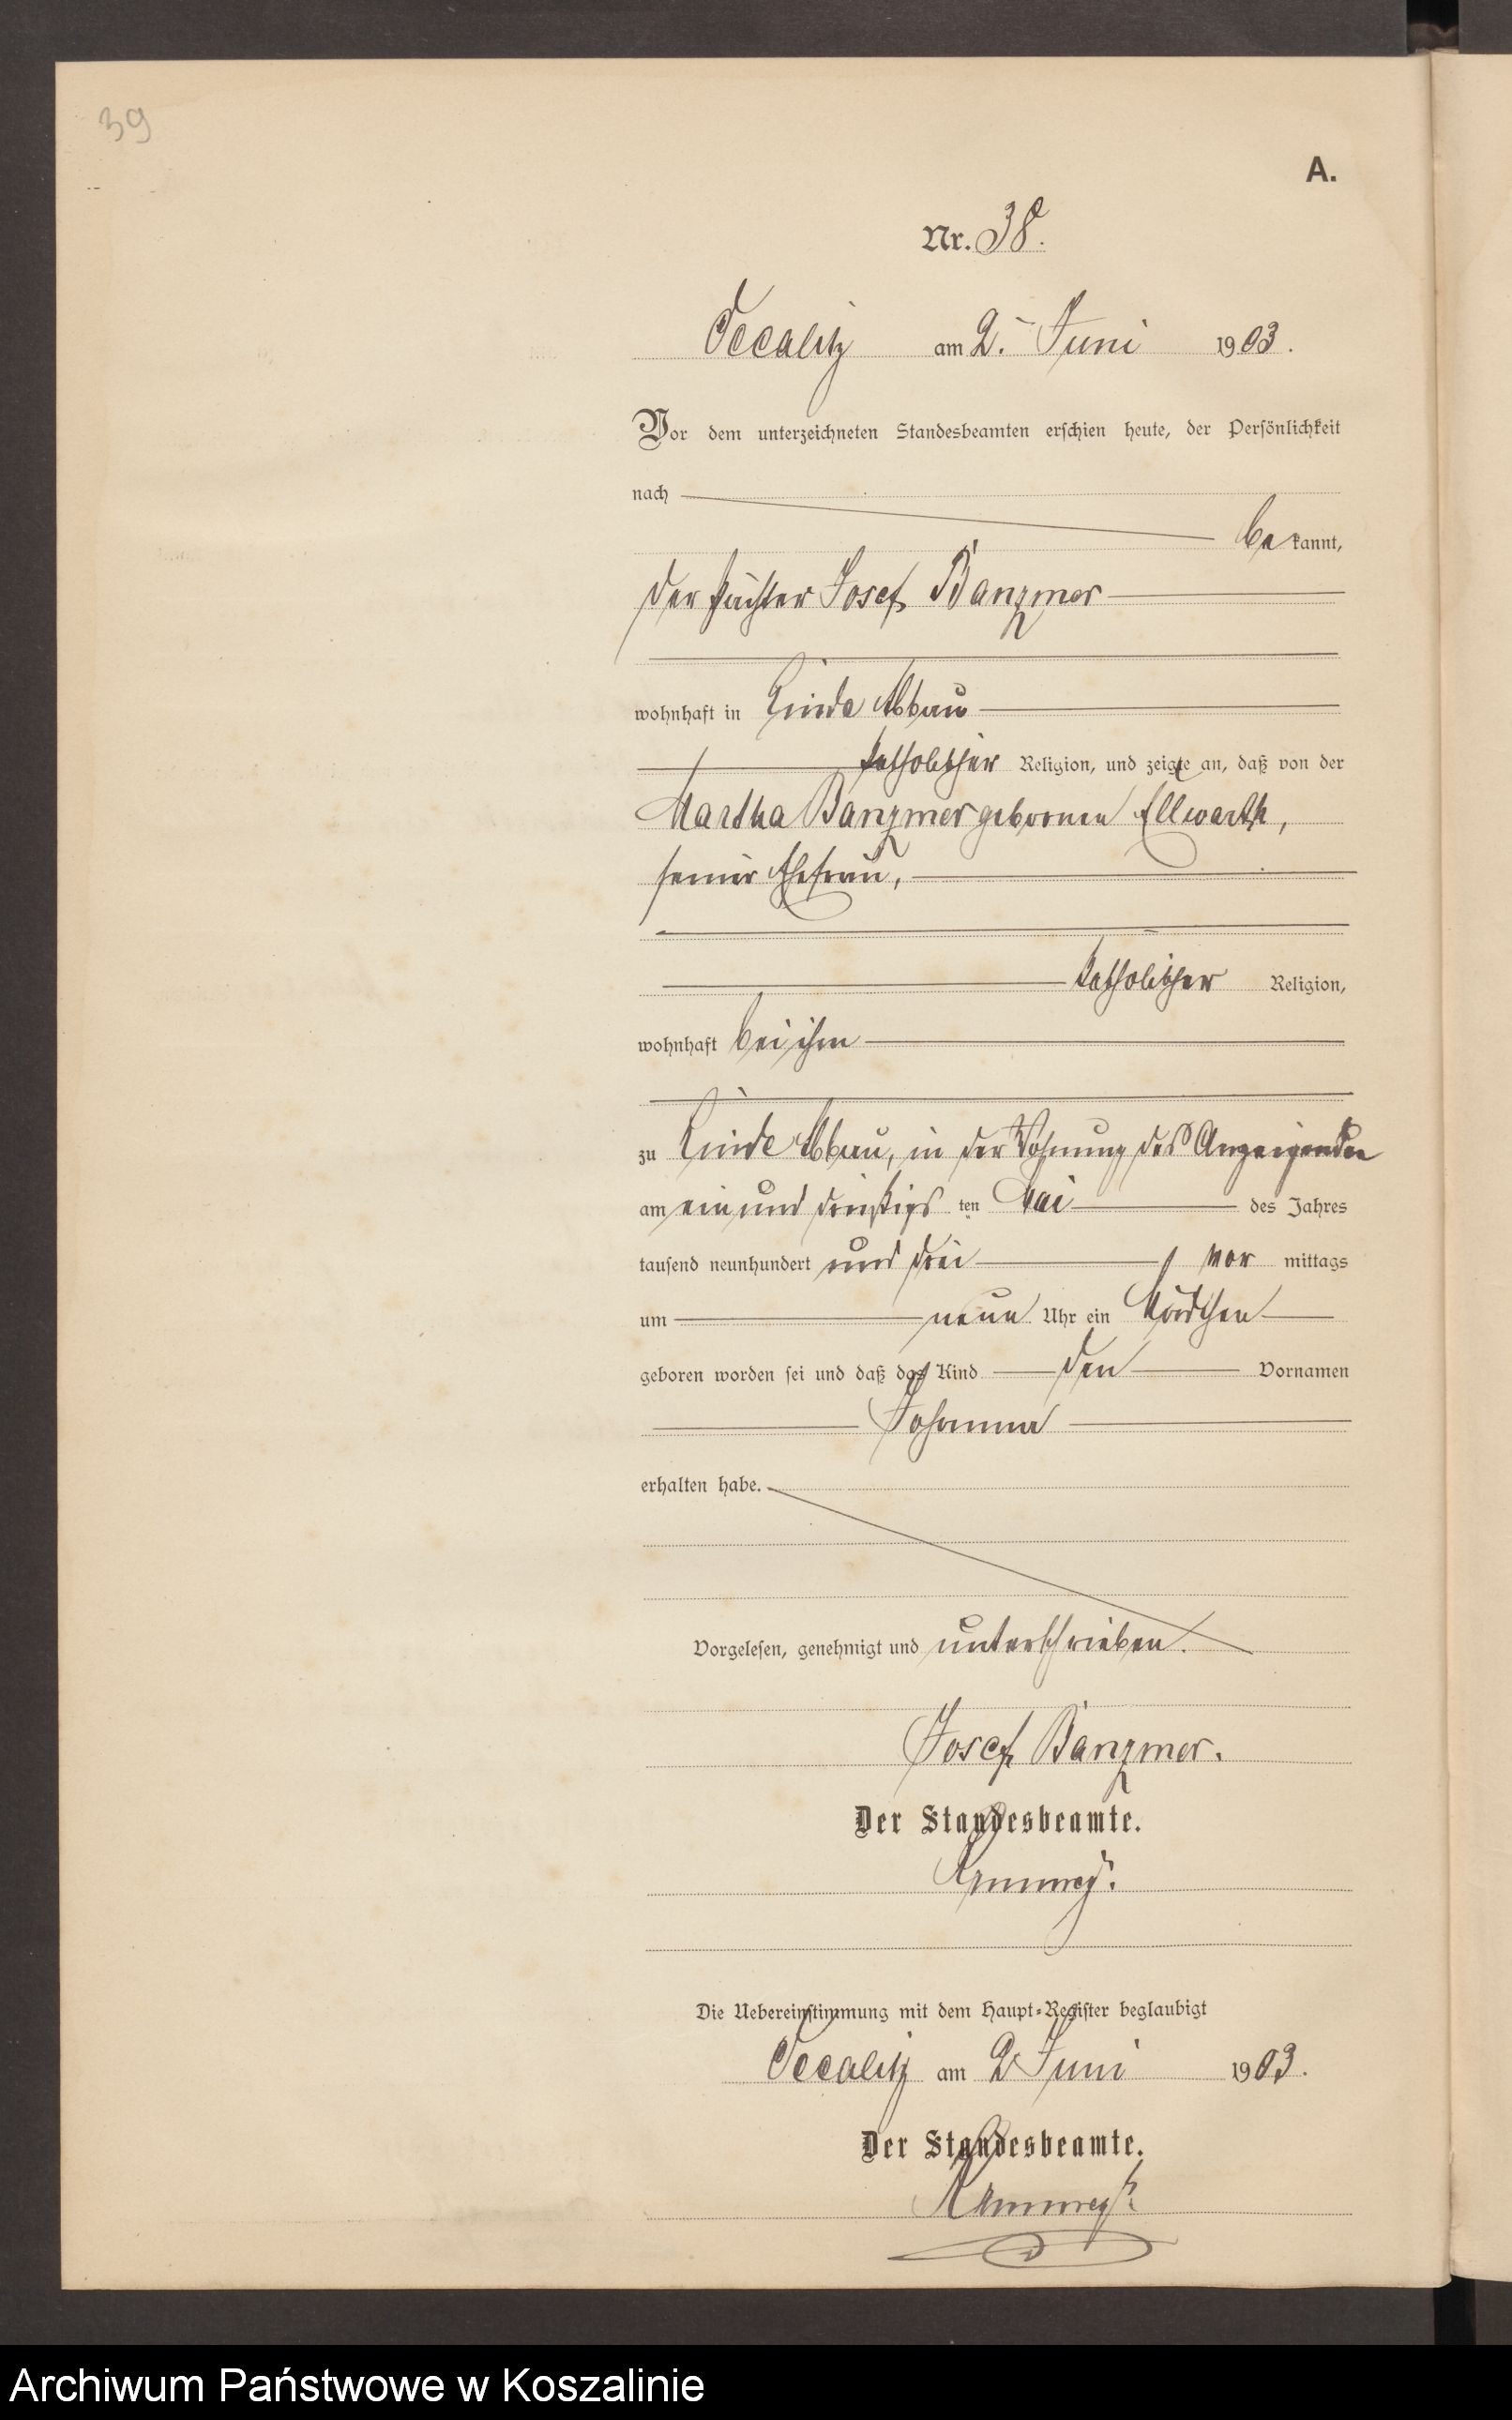 39
A.
Nr. 38.
Occalitz am 2. Juni 1903.
Vor dem unterzeichneten Standesbeamten erschien heute, der Persönlichkeit
nach
bekannt,
der Pächter Josef Banzmer
wohnhaft in Linde Abbau
katholischer Religion, und zeigte an, daß von der
Martha Banzmer geborenen Ellwarth,
seiner Ehefrau,
katholischer Religion,
wohnhaft bei ihm
zu Linde Abbau, in der Wohnung des Anzeigenden
am ein und dreißigsten Mai des Jahres
tausend neunhundert und drei, vormittags
um neun Uhr ein Mädchen
geboren worden sei und daß das Kind den Vornamen
Johanna
erhalten habe.
Vorgelesen, genehmigt und unterschrieben.
Josef Banzmer.
Der Standesbeamte.
Die Uebereinstimmung mit dem Haupt-Register beglaubigt
Occalitz am 2 Juni 1903.
Der Standesbeamte.
Archiwum Państwowe w Koszalinie